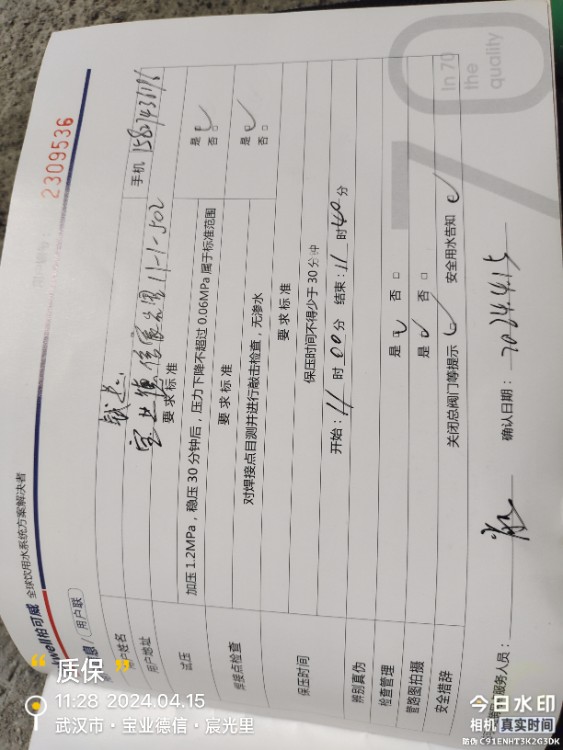 well柏可威 全球饮用水系统方案解决者
2309536
息 / 用户联
户姓名
手机 15827436196
用户地址 宝业德信宸光里 11-1-502
要求标准
试压 加压1.2MPa，稳压30分钟后，压力下降不超过0.06MPa属于标准范围 是 否□
要求标准
焊接点检查 对焊接点目测并进行敲击检查，无渗水 是 否□
要求标准
保压时间 保压时间不得少于30分钟
开始：11时00分 结束：11时40分
辨别真伪
检查管理 是 否□
管路图拍摄 是 否□
安全措辞 关闭总阀门等提示 安全用水告知
服务人员： 确认日期：2024.4.15
In 70
the
quality
70
“质保”
11:28 2024.04.15
武汉市·宝业德信·宸光里
今日水印
相机 真实时间
防伪 C91ENHT3K2G3DK